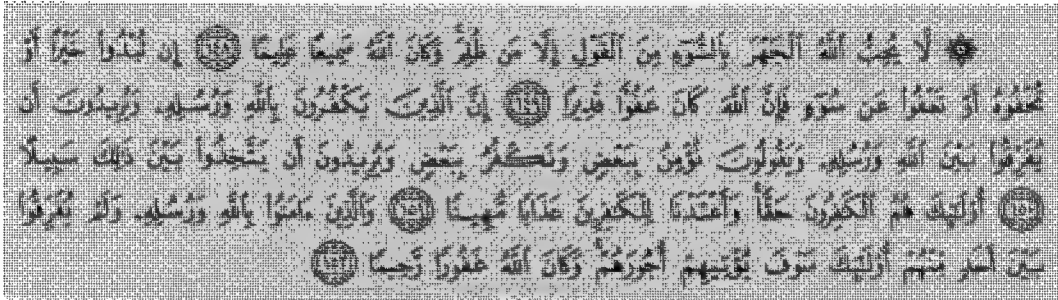 ۞ لَّا يُحِبُّ ٱللَّهُ ٱلْجَهْرَ بِٱلسُّوٓءِ مِنَ ٱلْقَوْلِ إِلَّا مَن ظُلِمَ ۚ وَكَانَ ٱللَّهُ سَمِيعًا عَلِيمًا ١٤٨ إِن تُبْدُوا۟ خَيْرًا أَوْ
تُخْفُوهُ أَوْ تَعْفُوا۟ عَن سُوٓءٍ فَإِنَّ ٱللَّهَ كَانَ عَفُوًّا قَدِيرًا ١٤٩ إِنَّ ٱلَّذِينَ يَكْفُرُونَ بِٱللَّهِ وَرُسُلِهِۦ وَيُرِيدُونَ أَن
يُفَرِّقُوا۟ بَيْنَ ٱللَّهِ وَرُسُلِهِۦ وَيَقُولُونَ نُؤْمِنُ بِبَعْضٍ وَنَكْفُرُ بِبَعْضٍ وَيُرِيدُونَ أَن يَتَّخِذُوا۟ بَيْنَ ذَٰلِكَ سَبِيلًا
١٥٠ أُو۟لَٰٓئِكَ هُمُ ٱلْكَٰفِرُونَ حَقًّا ۚ وَأَعْتَدْنَا لِلْكَٰفِرِينَ عَذَابًا مُّهِينًا ١٥١ وَٱلَّذِينَ ءَامَنُوا۟ بِٱللَّهِ وَرُسُلِهِۦ وَلَمْ يُفَرِّقُوا۟
بَيْنَ أَحَدٍ مِّنْهُمْ أُو۟لَٰٓئِكَ سَوْفَ يُؤْتِيهِمْ أُجُورَهُمْ ۗ وَكَانَ ٱللَّهُ غَفُورًا رَّحِيمًا ١٥٢